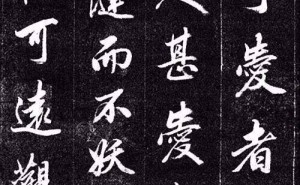 可愛者
人甚愛
漣而不妖
可遠觀